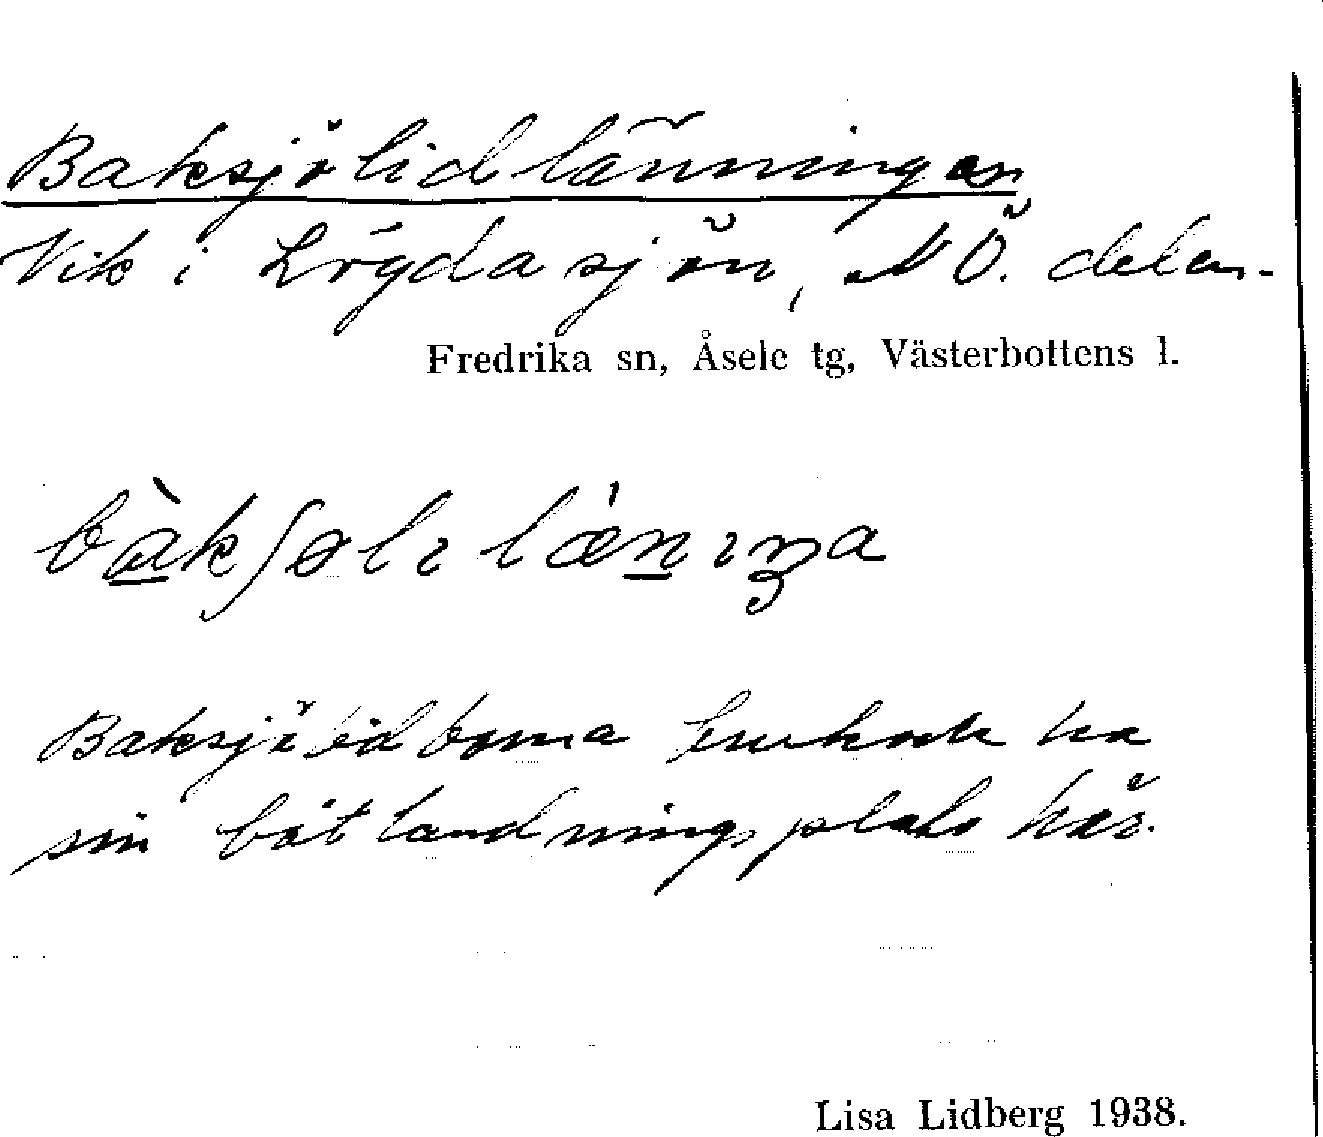 Baksjölidlänningen
Vik i Lögdasjön, NÖ. delen.
Fredrika sn, Åsele tg, Västerbottens l.
bàkʃøli lǽniŋa
Baksjölidborna brukade ha
sin båtlandningsplats här.
Lisa Lidberg 1938.